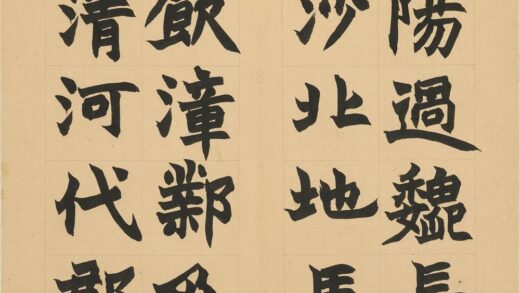 陽過魏長
沙北地馬
飲漳鄴及
清河代郡